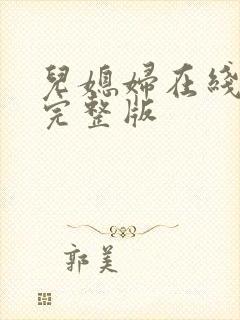 兒媳婦在綫
完整版
郭美